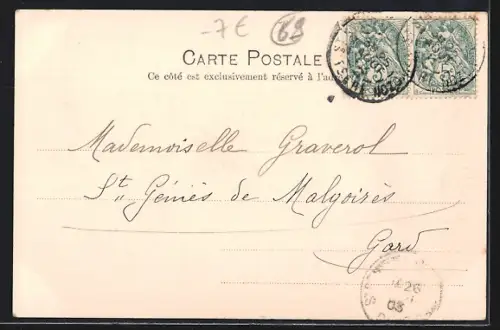 -7€ 69
CARTE POSTALE
Ce côté est exclusivement réservé à l'ad
Mademoiselle Graverol
St Géniès de Malgoirès
Gard
26
03